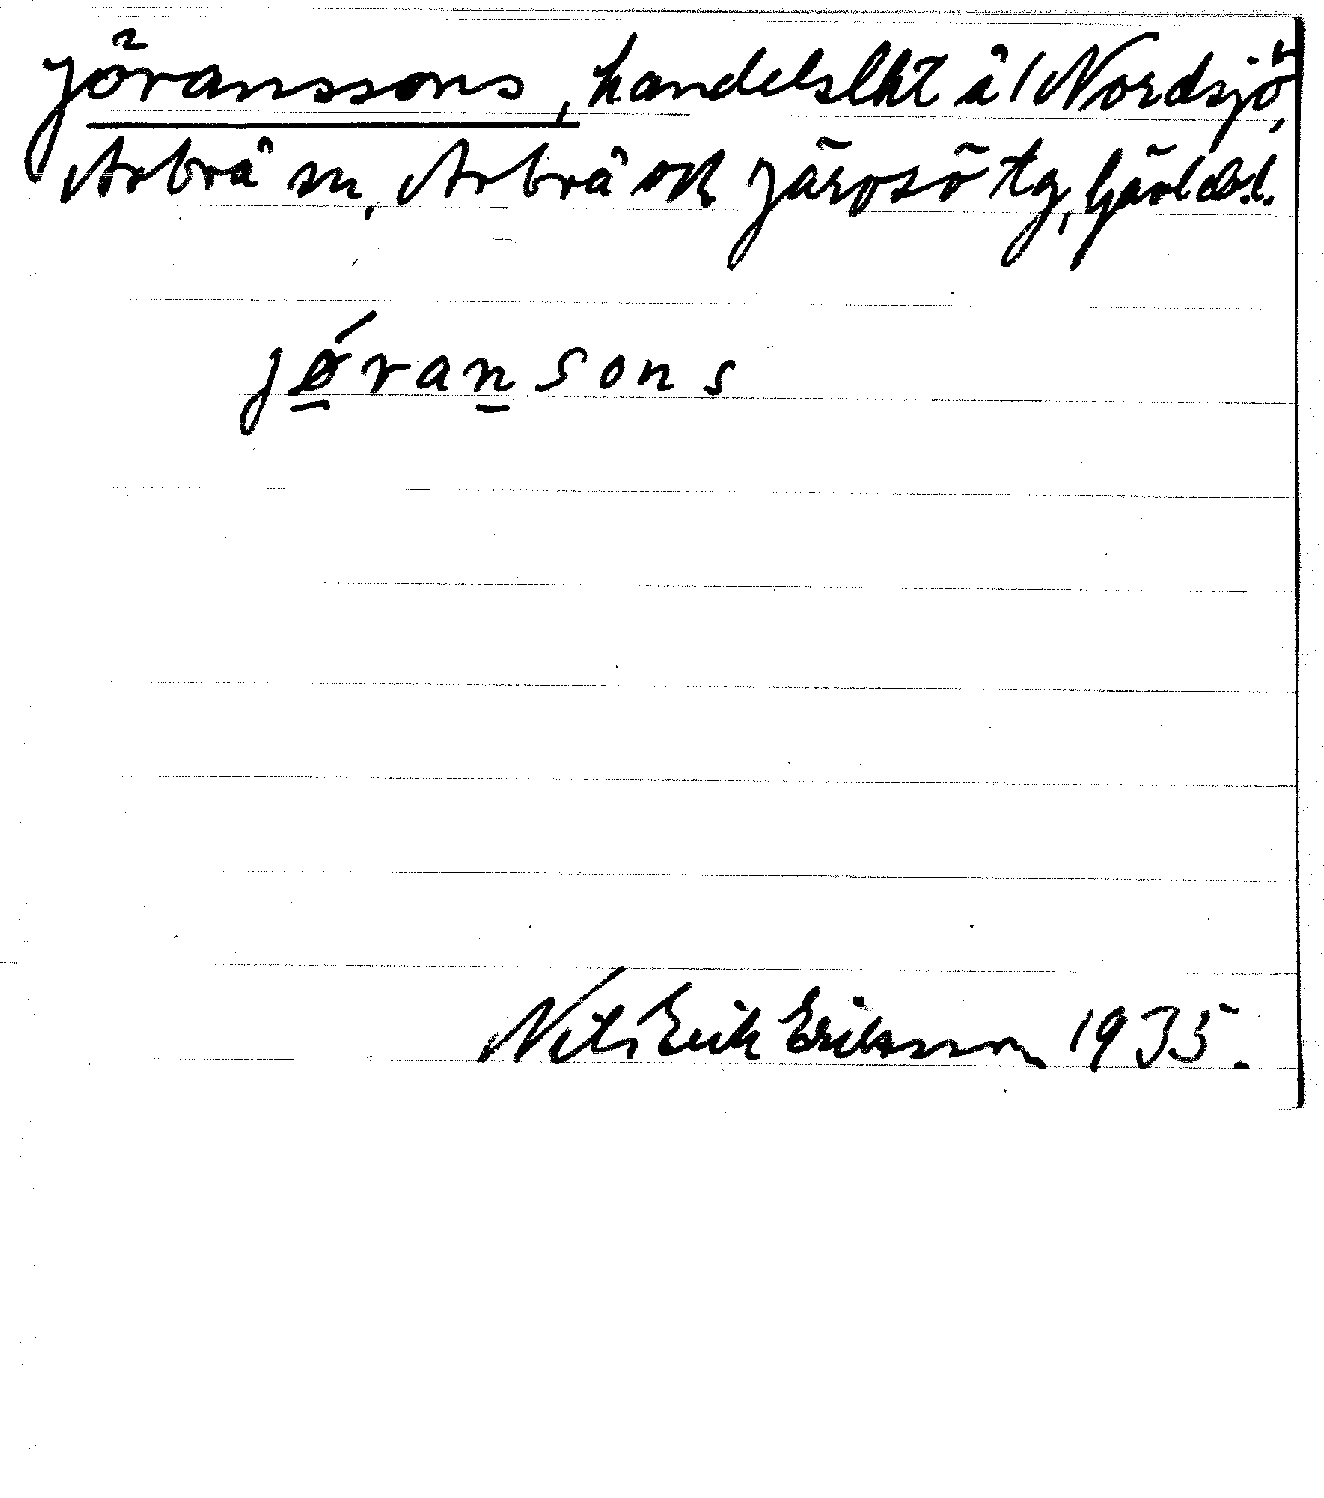 Jöranssons, handelslht å 1 Nordsjö,
Arbrå sn, Arbrå och Järvsö tg, Gävlebs l.
jǿransons
Nils Erik Eriksson 1935.